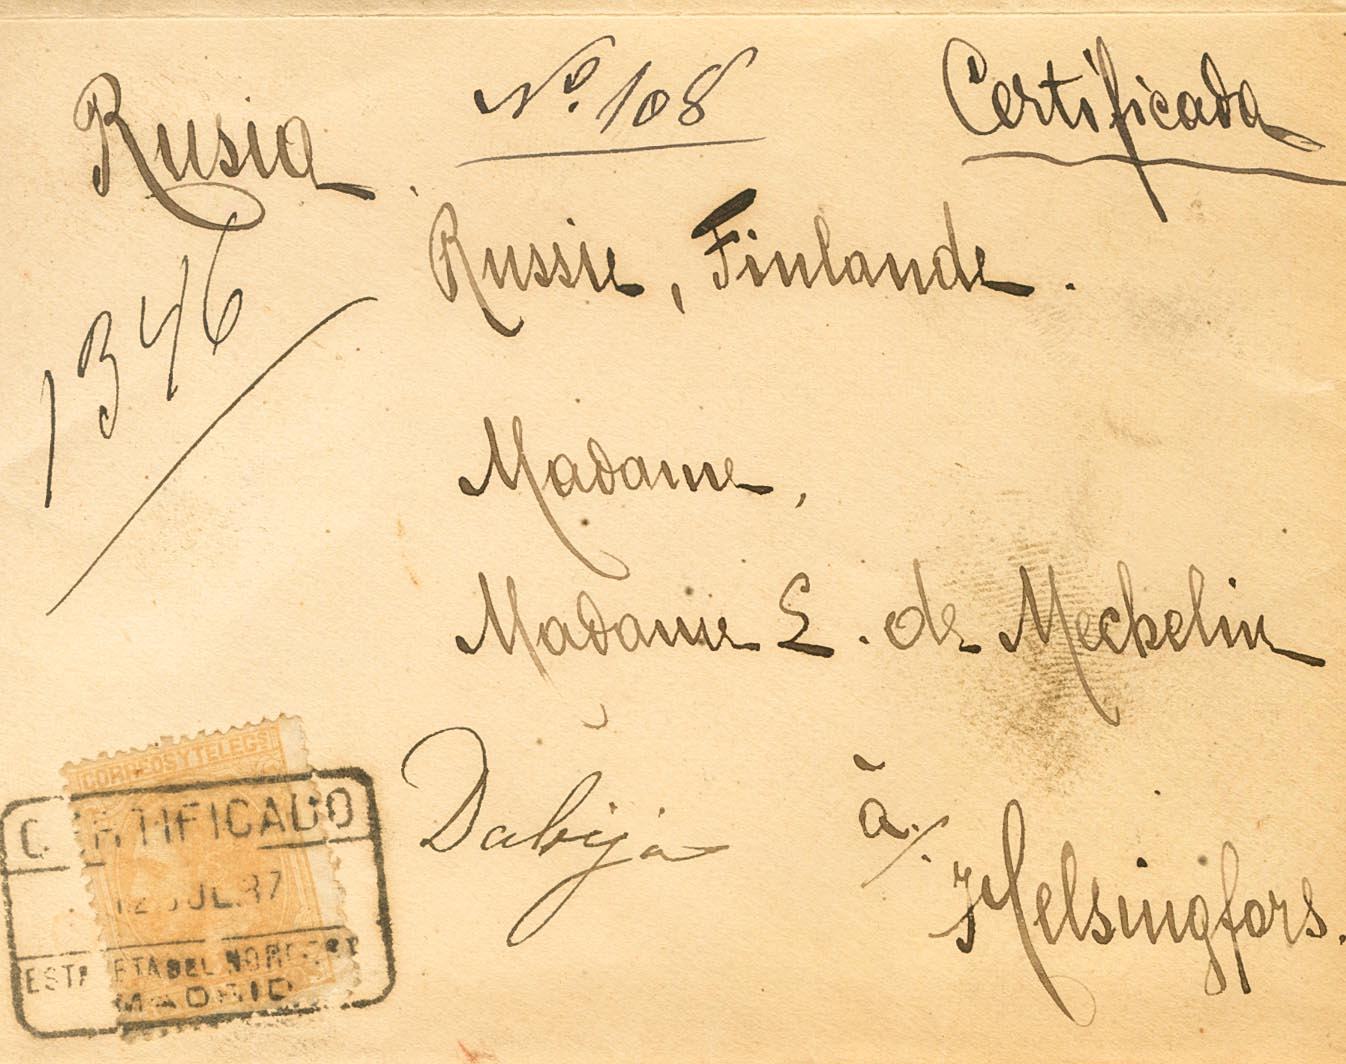 Rusia
Nº. 108
Certificada
1346
Russie, Finlande.
Madame,
Madame E. de Meckelin
Dabija
à
Helsingfors.
CORREOS Y TELEGS
CERTIFICADO
12 JUL. 87
MADRID